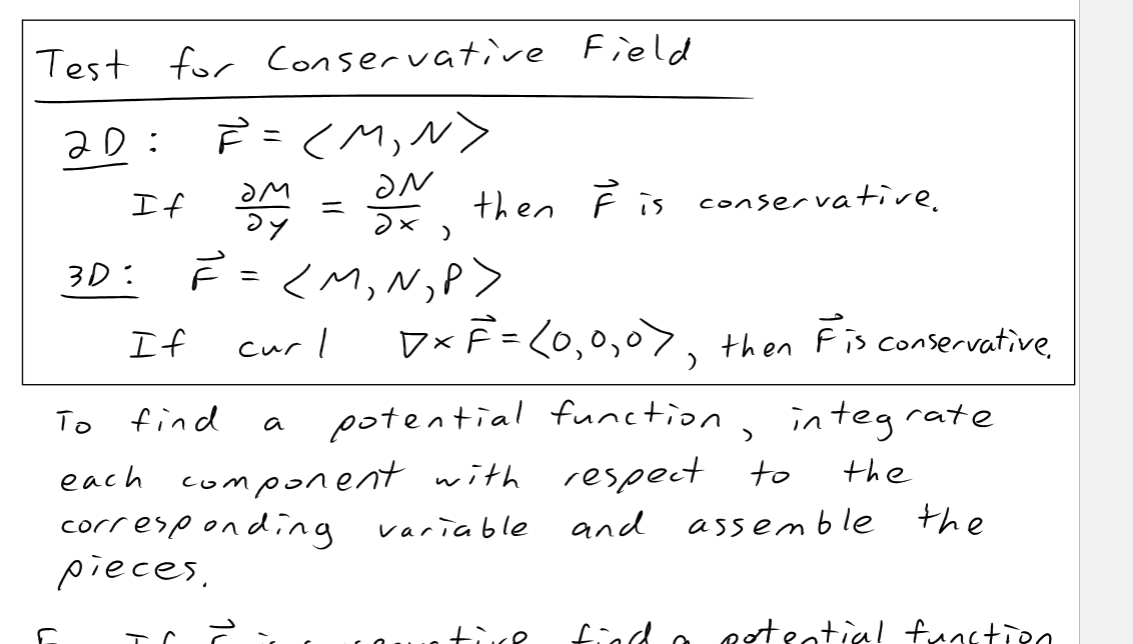 Test for Conservative Field
2D: F⃗ = ⟨M, N⟩
If ∂M/∂y = ∂N/∂x, then F⃗ is conservative.
3D: F⃗ = ⟨M, N, P⟩
If curl ∇×F⃗ = ⟨0,0,0⟩, then F⃗ is conservative.
To find a potential function, integrate
each component with respect to the
corresponding variable and assemble the
pieces.
If F⃗ is conservative find a potential function